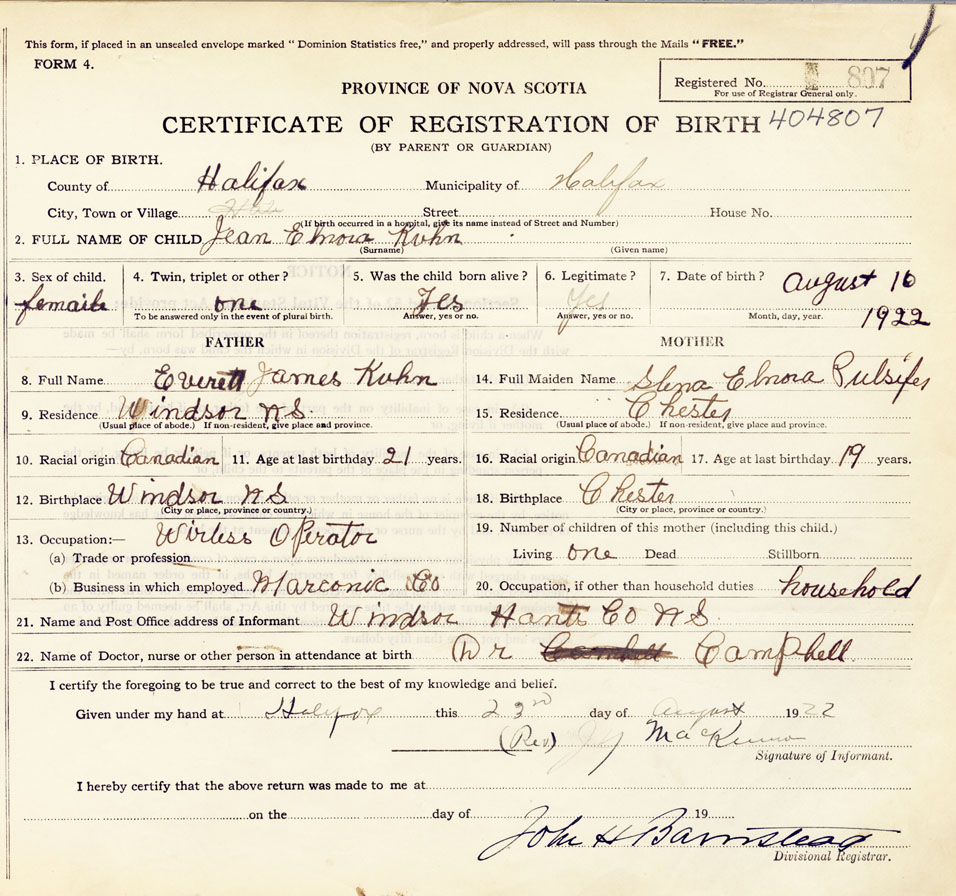 This form, if placed in an unsealed envelope marked “Dominion Statistics free,” and properly addressed, will pass through the Mails “FREE.”
FORM 4.
Registered No. 807
For use of Registrar General only.
PROVINCE OF NOVA SCOTIA
CERTIFICATE OF REGISTRATION OF BIRTH 404807
(BY PARENT OR GUARDIAN)
1. PLACE OF BIRTH.
County of Halifax Municipality of Halifax
City, Town or Village Street House No.
(If birth occurred in a hospital, give its name instead of Street and Number)
2. FULL NAME OF CHILD Jean Elnora Kuhn
(Surname) (Given name)
3. Sex of child. 4. Twin, triplet or other? 5. Was the child born alive? 6. Legitimate? 7. Date of birth? August 16
female one Yes Yes 1922
To be answered only in the event of plural birth. Answer, yes or no. Answer, yes or no. Month, day, year.
FATHER MOTHER
8. Full Name Everett James Kuhn 14. Full Maiden Name Elnora Pulsifer
9. Residence Windsor N S. 15. Residence. Chester
(Usual place of abode.) If non-resident, give place and province. (Usual place of abode.) If non-resident, give place and province.
10. Racial origin Canadian 11. Age at last birthday 21 years. 16. Racial origin Canadian 17. Age at last birthday 19 years.
12. Birthplace Windsor N S 18. Birthplace Chester
(City or place, province or country.) (City or place, province or country.)
13. Occupation:— Wirless Operator 19. Number of children of this mother (including this child.)
(a) Trade or profession Living one Dead Stillborn
(b) Business in which employed Marconic Co 20. Occupation, if other than household duties household
21. Name and Post Office address of Informant Windsor Hants Co N S
22. Name of Doctor, nurse or other person in attendance at birth Dr Campbell
I certify the foregoing to be true and correct to the best of my knowledge and belief.
Given under my hand at Halifax this 23rd day of August 1922
(Rev) MacKinnon
Signature of Informant.
I hereby certify that the above return was made to me at
on the day of 19
John H Barnstead
Divisional Registrar.